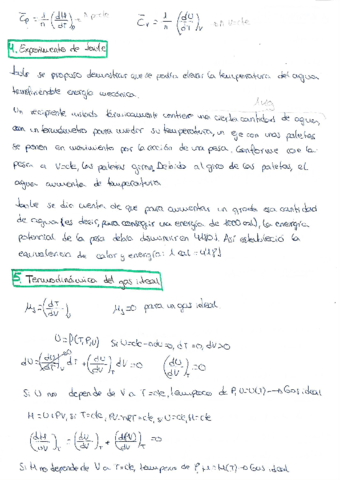 C̄p = 1/n (dH/dT)p → n pcte    C̄v = 1/n (dU/dT)v → n vcte
4. Experimento de Joule
Joule se propuso demostrar que se podía elevar la temperatura del agua
suministrándole energía mecánica.
Un recipiente aislado térmicamente contiene una cierta cantidad de agua,
con un termómetro para medir su temperatura, un eje con unas paletas
se ponen en movimiento por la acción de una pesa. Conforme cae la
pesa a V=cte, las paletas giran. Debido al giro de las paletas, el
agua aumenta de temperatura.
Joule se dio cuenta de que para aumentar un grado esa cantidad
de agua (es decir, para conseguir una energía de 1000 cal), la energía
potencial de la pesa debía disminuir en 4180 J. Así estableció la
equivalencia de calor y energía: 1 cal = 4'18 J
5. Termodinámica del gas ideal
μJ = (dT/dV)U    μJ = 0 para un gas ideal
U = f(T,P,V)  Si U=cte → dU=0, dT=0, dV>0
dU = (dU/dT)V dT + (dU/dV)T dV = 0    (dU/dV)T = 0
Si U no depende de V a T=cte, tampoco de P, U=U(T) → Gas ideal
H = U+PV, si T=cte, PV=nRT=cte, si U=cte, H=cte
(dH/dV)T = (dU/dV)T + (d(PV)/dV)T = 0
Si H no depende de V a T=cte, tampoco de P, H=H(T) → Gas ideal